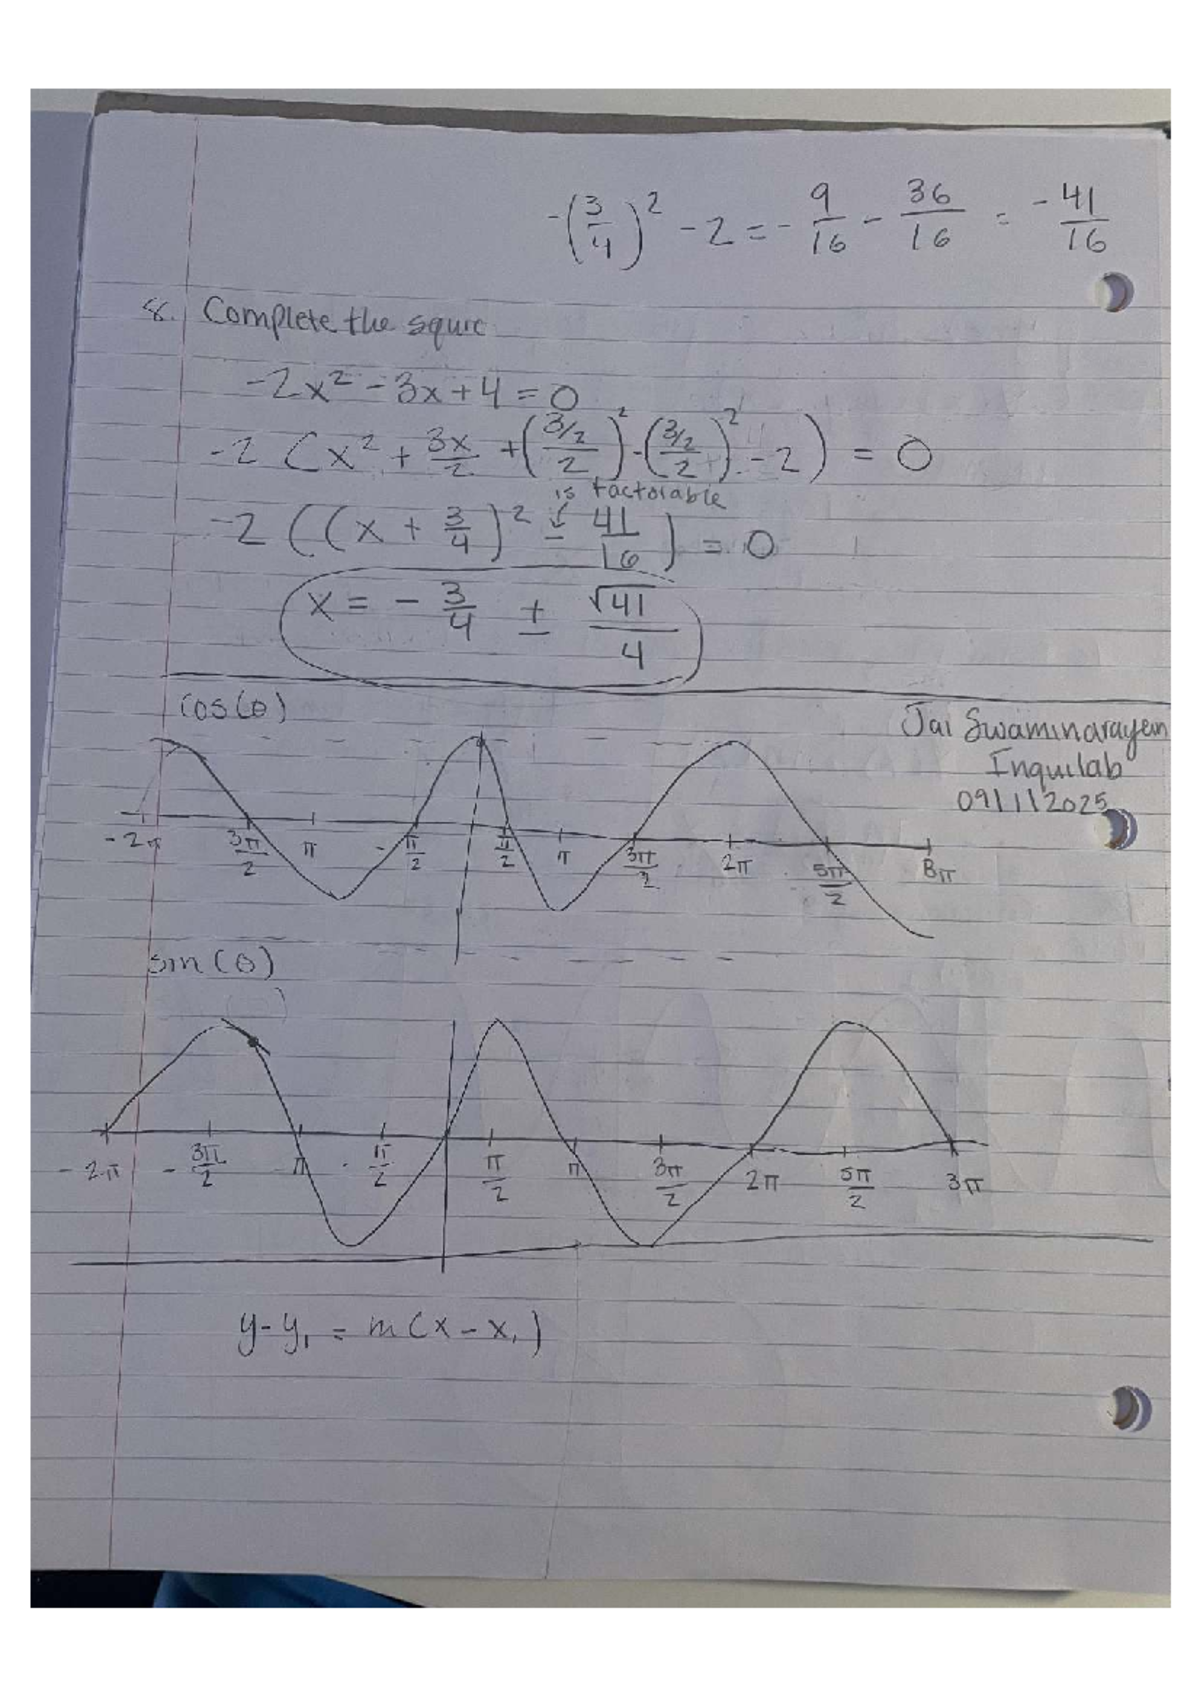 -(3/4)² - 2 = - 9/16 - 36/16 = - 41/16
8. Complete the squre
-2x² - 3x + 4 = 0
-2 (x² + 3x/2 + (3/2/2)² - (3/2/2)² - 2) = 0
is factorable
-2 ((x + 3/4)² - 41/16) = 0
x = - 3/4 ± √41/4
cos(θ)
Jai Swaminarayan
Inquilab
09/11/2025
-2π 3π/2 π -π/2 π/2 π 3π/2 2π 5π/2 3π
sin(θ)
-2π -3π/2 -π -π/2 π/2 π 3π/2 2π 5π/2 3π
y-y₁ = m(x-x₁)